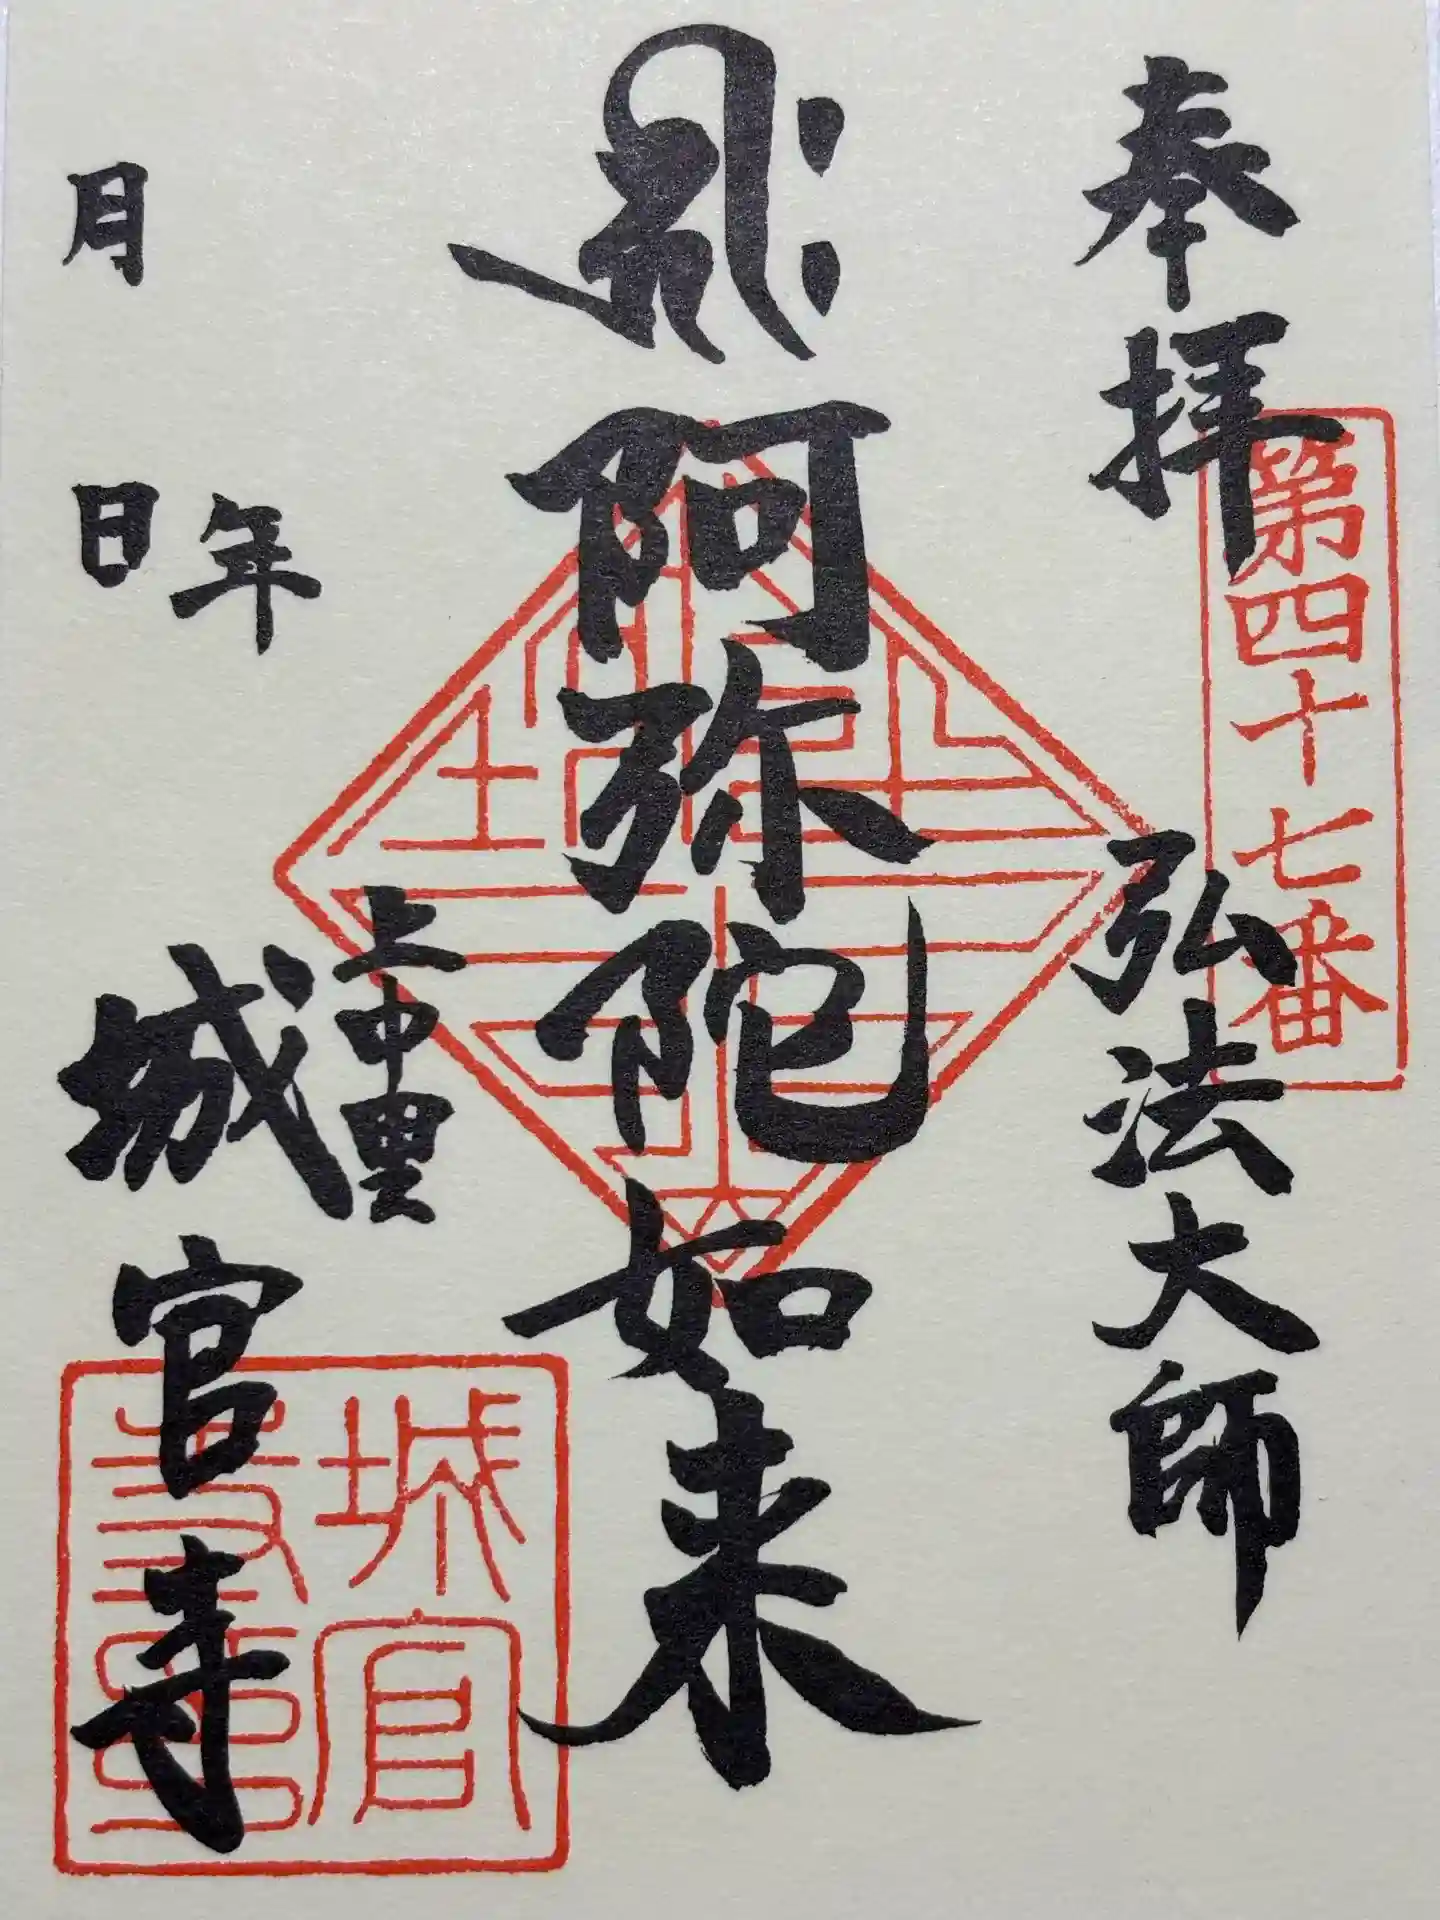 奉拝
第四十七番
弘法大師
阿弥陀如来
上中里
城官寺
年
月
日
城官
寺